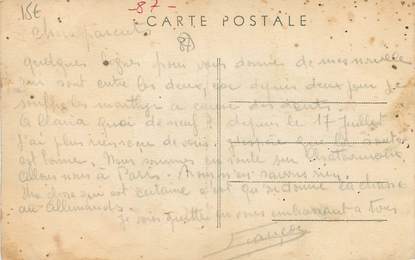 15€
- 87 -
CARTE POSTALE
87
Chers parents
quelques lignes pour vous donner de mes nouvelles
sont entre les deux, car depuis deux jours je
souffre le martyr a cause des dents.
quoi de neuf depuis le 17 juillet
j'ai plus rien reçu de vous. j'espère que la santé
est bonne. Nous sommes en route sur
allons nous à Paris. nous n'en savons rien
Une chose qui est certaine c'est qu'on donne la chasse
au allemands.
Je vous quitte en vous embrassant a tous
François